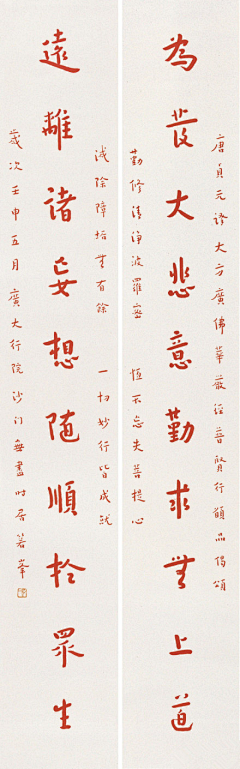 唐貞元譯大方廣佛華嚴經普賢行願品偈頌
為發大悲意勤求無上道
勤修清淨波羅蜜 恆不忘失菩提心
滅除障垢無有餘 一切妙行皆成就
遠離諸妄想隨順於眾生
歲次壬申五月廣大行院沙門無盡時居峯